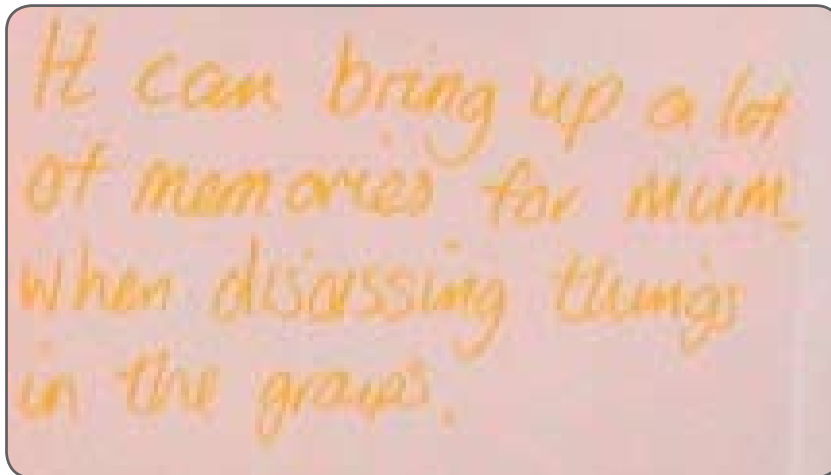 It can bring up a lot
of memories for Mum
when discussing things
in the groups.